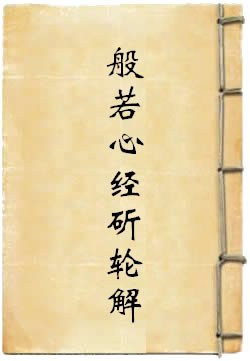 般若心经斫轮解